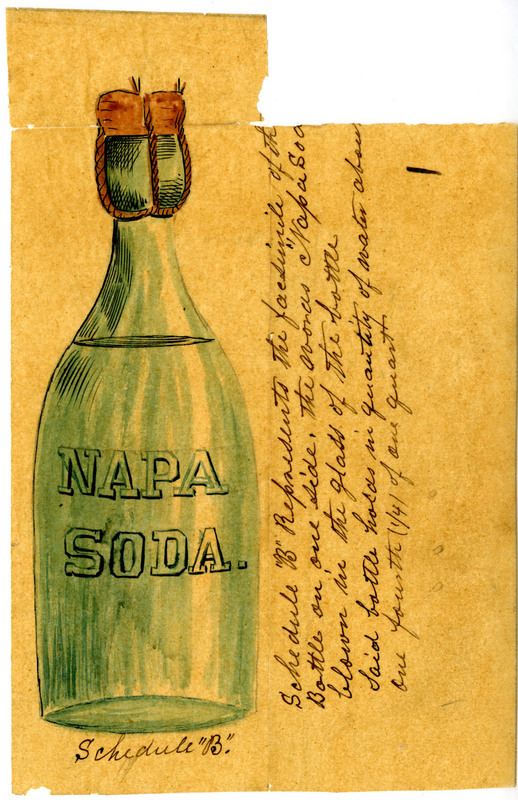 NAPA
SODA.
Schedule "B".
Schedule "B" Represents the facsimile of the
Bottle on one side, the words "Napa Sod
blown in the glass of the bottle
Said bottle holds in quantity of water about
one fourth (1/4) of one quart